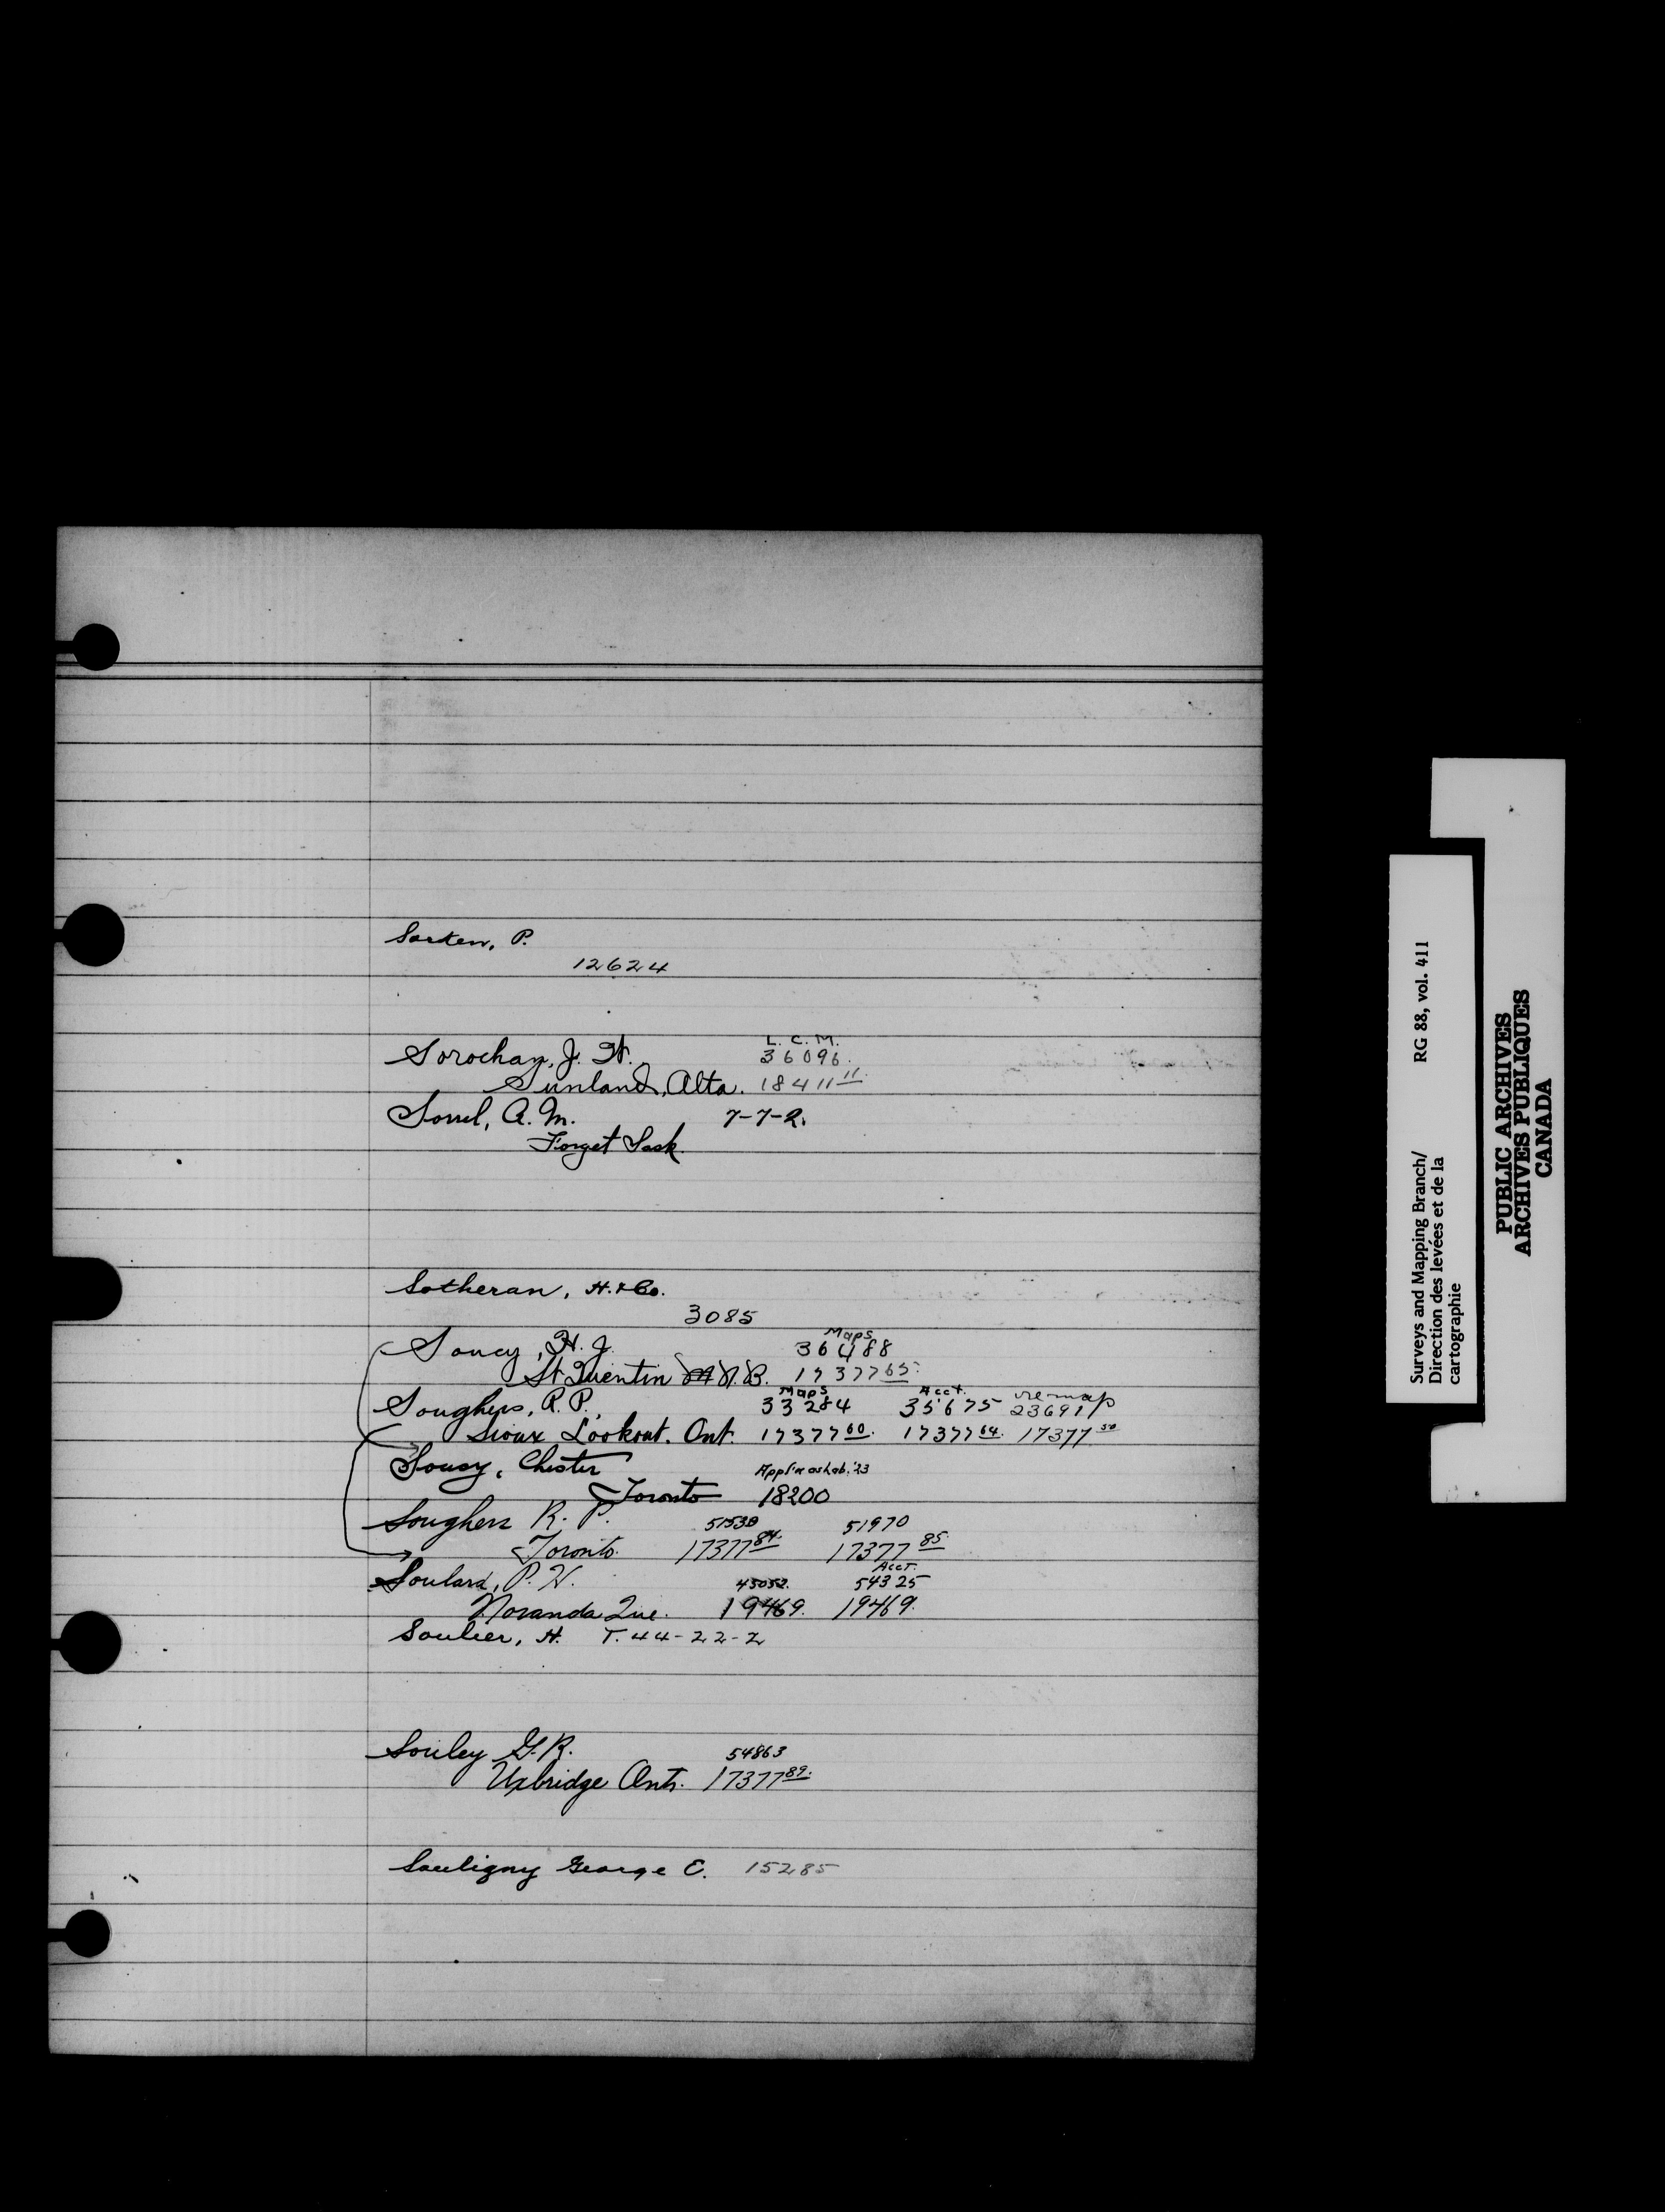 Sorken, P.
12624
L. C. M.
Sorochan, J. W. 36096.
Sunland, Alta. 18411 11.
Sorrel, A. M. 7-7-2.
Forget Sask.
Sotheran, H. & Co.
3085
Maps
Soucy, H. J. 36488
St Quentin N.B. 17377 65.
Maps Acct. re map
Soughers, R. P., 33284 35675 23691
Sioux Lookout, Ont. 17377 60. 17377 64. 17377 50
Soucy, Chester Appl'n as Lab. '23
Toronto 18200
Soughers R. P. 51530 51970
Toronto. 17377 84. 17377 85.
Acct.
Soulard, P. H. 45052. 54325
Noranda Que. 19469. 19469.
Soulier, H. T. 44-22-2
Souley G. R. 54863
Uxbridge Ont. 17377 89.
Souligny George E. 15285
Surveys and Mapping Branch/ RG 88, vol. 411
Direction des levées et de la
cartographie
PUBLIC ARCHIVES
ARCHIVES PUBLIQUES
CANADA